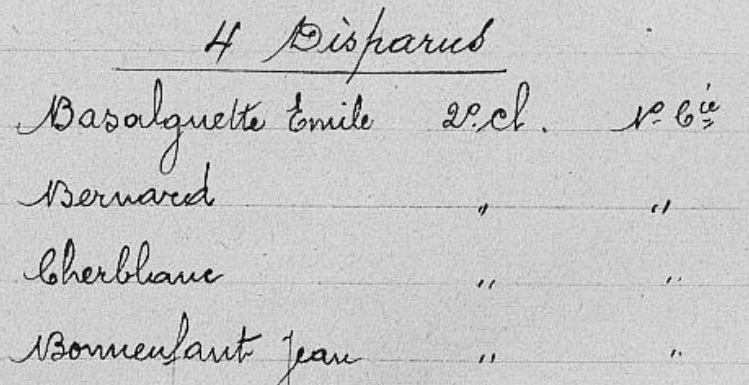 4 Disparus
Basalguette Emile 2e. cl. 1e. Cie
Bernard " "
Cherblanc " "
Bonnenfant Jean " "